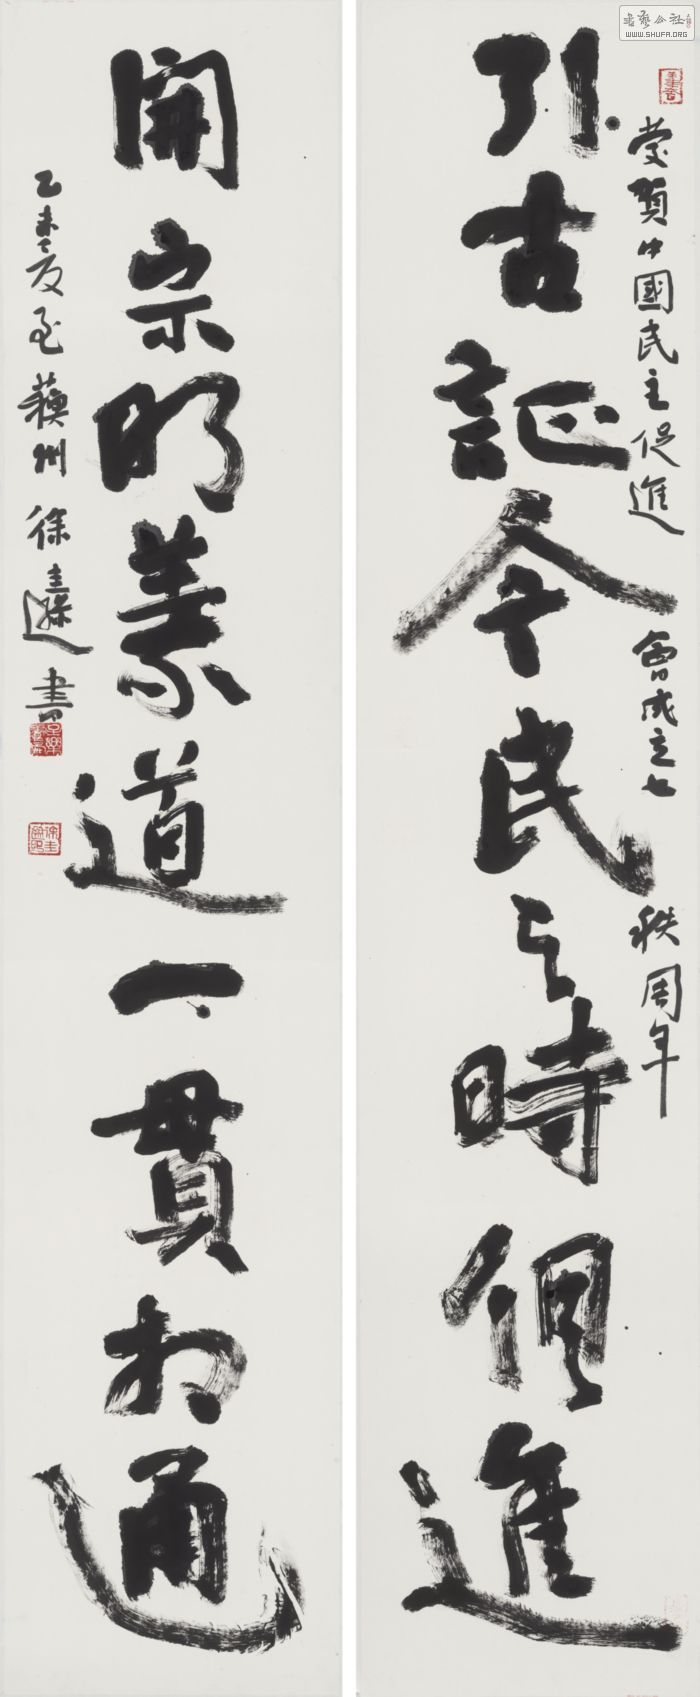 書藝公社
WWW.SHUFA.ORG
慶賀中國民主促進會成立七秩周年
引古証今民与時俱進
開宗明義道一貫相通
乙未夏至蘇州徐圭遜書